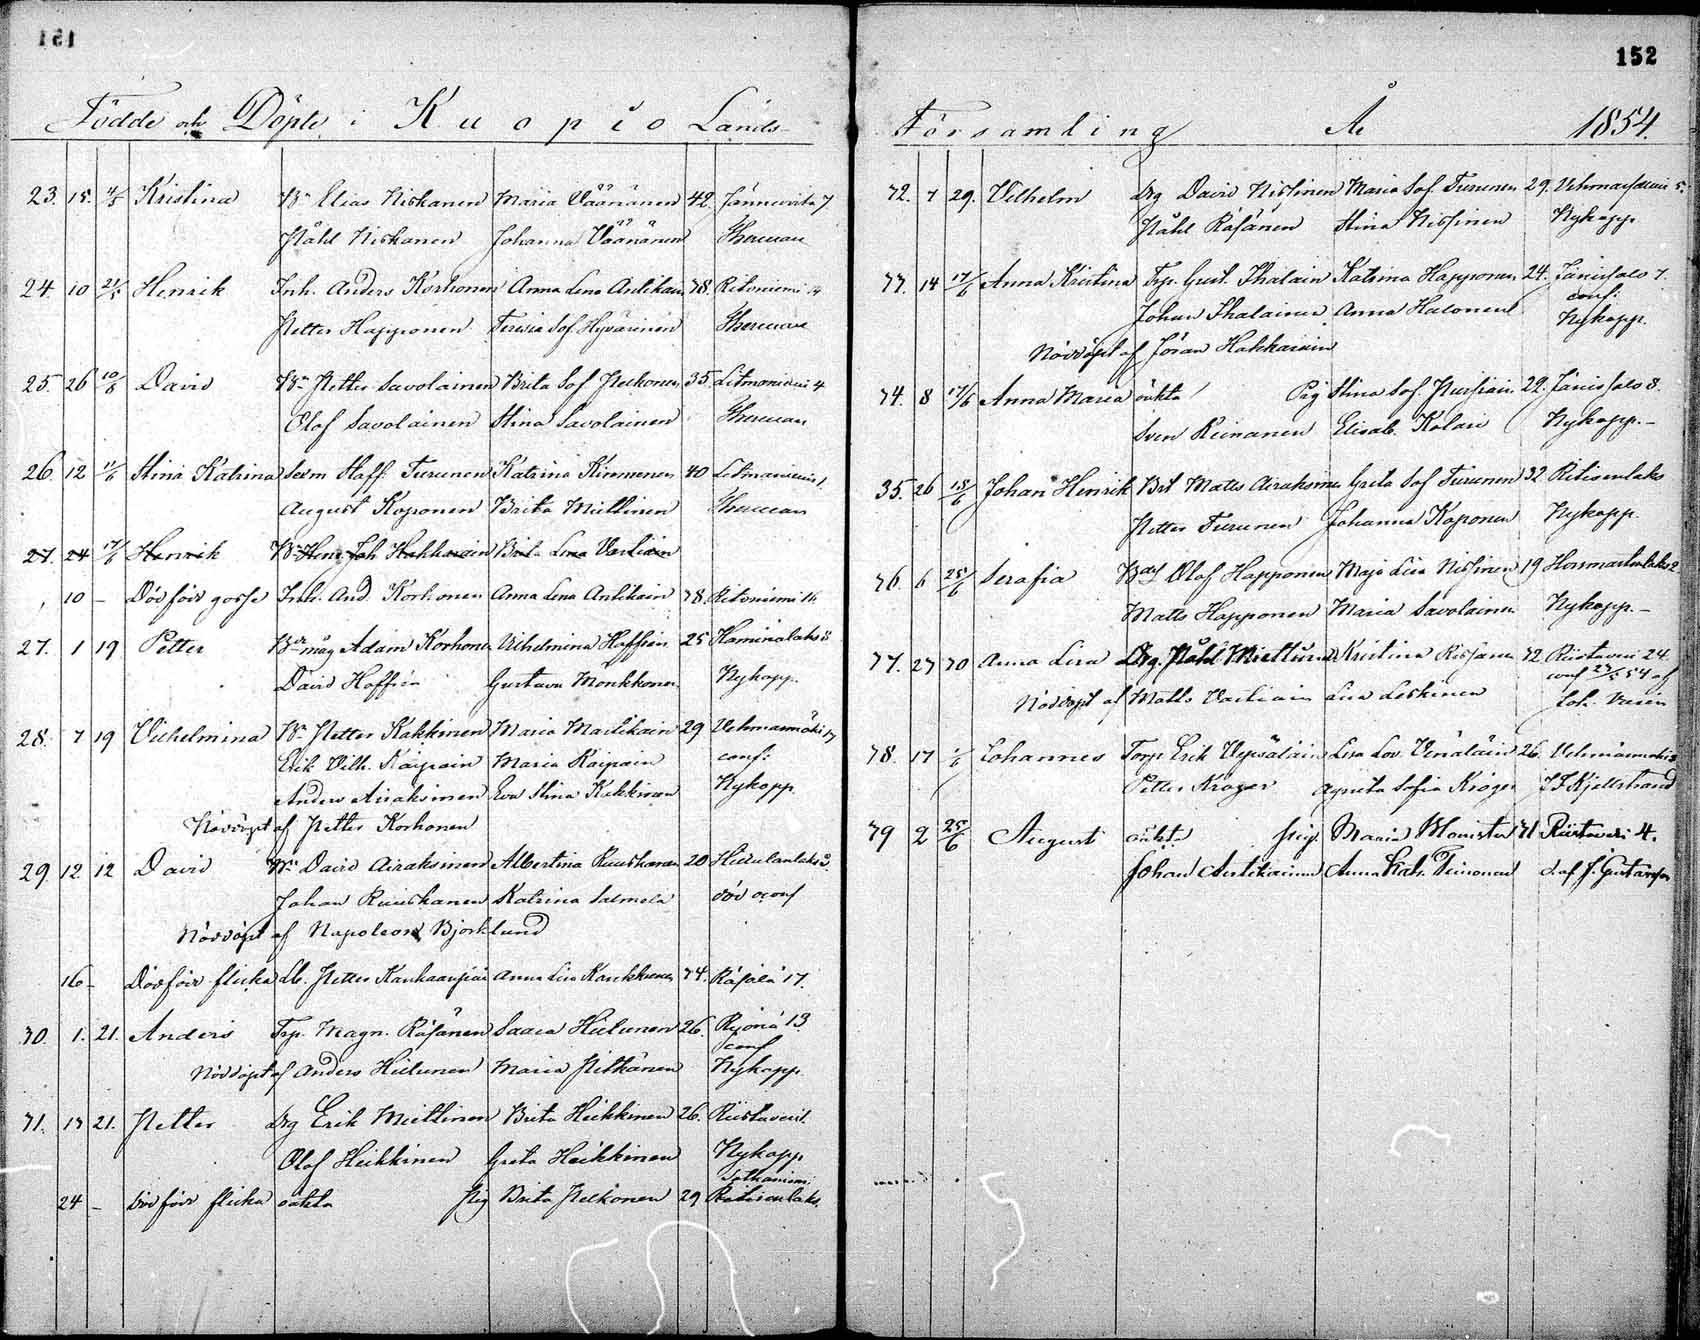 151
Födde och Döpte i Kuopio Lands-
23. 15. 4/5 Kristina Bn Elias Niskanen Maria Väänänen 42. Jännevirta 7
Påhl Niskanen Johanna Väänänen
24. 10 21/5 Henrik Inh. Anders Korhonen Anna Lena Antikain 38. Ritoniemi
Petter Happonen Teresia Sof. Hyvärinen
25. 26 10/6 David Bn Petter Savolainen Brita Sof. Pelkonen 35. Litmaniemi 4
Olof Savolainen Stina Savolainen
26. 12 11/6 Stina Katrina Staff. Turunen Katrina Kinnunen 40 Litmaniemi
August Koponen Brita Miettinen
27. 24 17/6 Henrik Joh Hakkarain Brita Lena Vartiain
10 – Dödför gosse Inh. And. Korhonen Anna Lena Antikain 38. Ritoniemi 16.
27. 1 19 Petter Bn måg Adam Korhonen Vilhelmina Hoffrén 25 Haminalaks
David Hoffrén Gustava Monkkonen Nykopp.
28. 7 19 Vilhelmina Bn Petter Kakkinen Maria Martikain 29 Vehmasmäki 17
Erik Vilh. Kaipain Maria Kaipain conf:
Anders Airaksinen Eva Stina Kakkinen Nykopp.
Nöddöpt af Petter Korhonen
29. 12. 12 David Bn David Airaksinen Albertina Ruuskanen 20 Hiltulanlaks 2.
Johan Ruuskanen Katrina Salmela död oconf
Nöddöpt af Napoleon Bjorklund
16 – Dödför flicka Petter Kauhanen Anna Lisa 34. Räsälä 17.
30. 1. 21. Anders Trp. Magn. Räsänen Saara Hiltunen 26. Ryönä 13
conf
Nöddöpt af Anders Hiltunen Maria Pitkänen Nykopp.
31. 13 21. Petter Drg Erik Miettinen Brita Heikkinen 26. Riistavesi.
Olof Heikkinen Greta Heikkinen Nykopp
24 – död för flicka oäkta Pig Brita Pelkonen 29 Ritisenlaks.
152
Församling År 1854.
32. 7 29. Vilhelm Drg David Nissinen Maria Sof. Turunen 29. Vehmasmäki 5.
Påhl Räsänen Stina Nissinen Nykopp
33. 14 17/6 Anna Kristina Trp. Gust. Ihalain Katrina Happonen 24. Jänissalo 7.
conf:
Johan Ihalainen Anna Halonen Nykopp.
Nöddöpt af Jöran Hakkarain
34. 8 17/6 Anna Maria oäkta Pig Stina Sof. Pursiain 29. Jänissalo 8.
Sven Reinanen Elisab. Kolari Nykopp. –
35. 26 18/6 Johan Henrik Matts Airaksinen Greta Sof Turunen 32 Ritisenlaks
Petter Turunen Johanna Koponen Nykopp.
36. 6 25/6 Serafia Olof Happonen Maja Lisa Nissinen 19 Hormanlaks 2
Matts Happonen Maria Savolainen Nykopp. –
37. 27 30 Anna Lisa Drg. Påhl Miettunen Kristina Räsänen 32 Riistavesi 24.
Nöddöpt af Matts Vartiain Lisa Leskinen
38. 17 1/6 Johannes Torp Erik Vepsäläin Lisa Lov. Venäläin 26. Vehmasmäki
Petter Kröger Agneta Sofia Kröger J F Kjellstrand
39 2 25/6 August oäkta pig. Maria Monister 31 Riistavesi 4.
Johan Antikainen Anna Kat. Teinonen d. af J. Gustafson